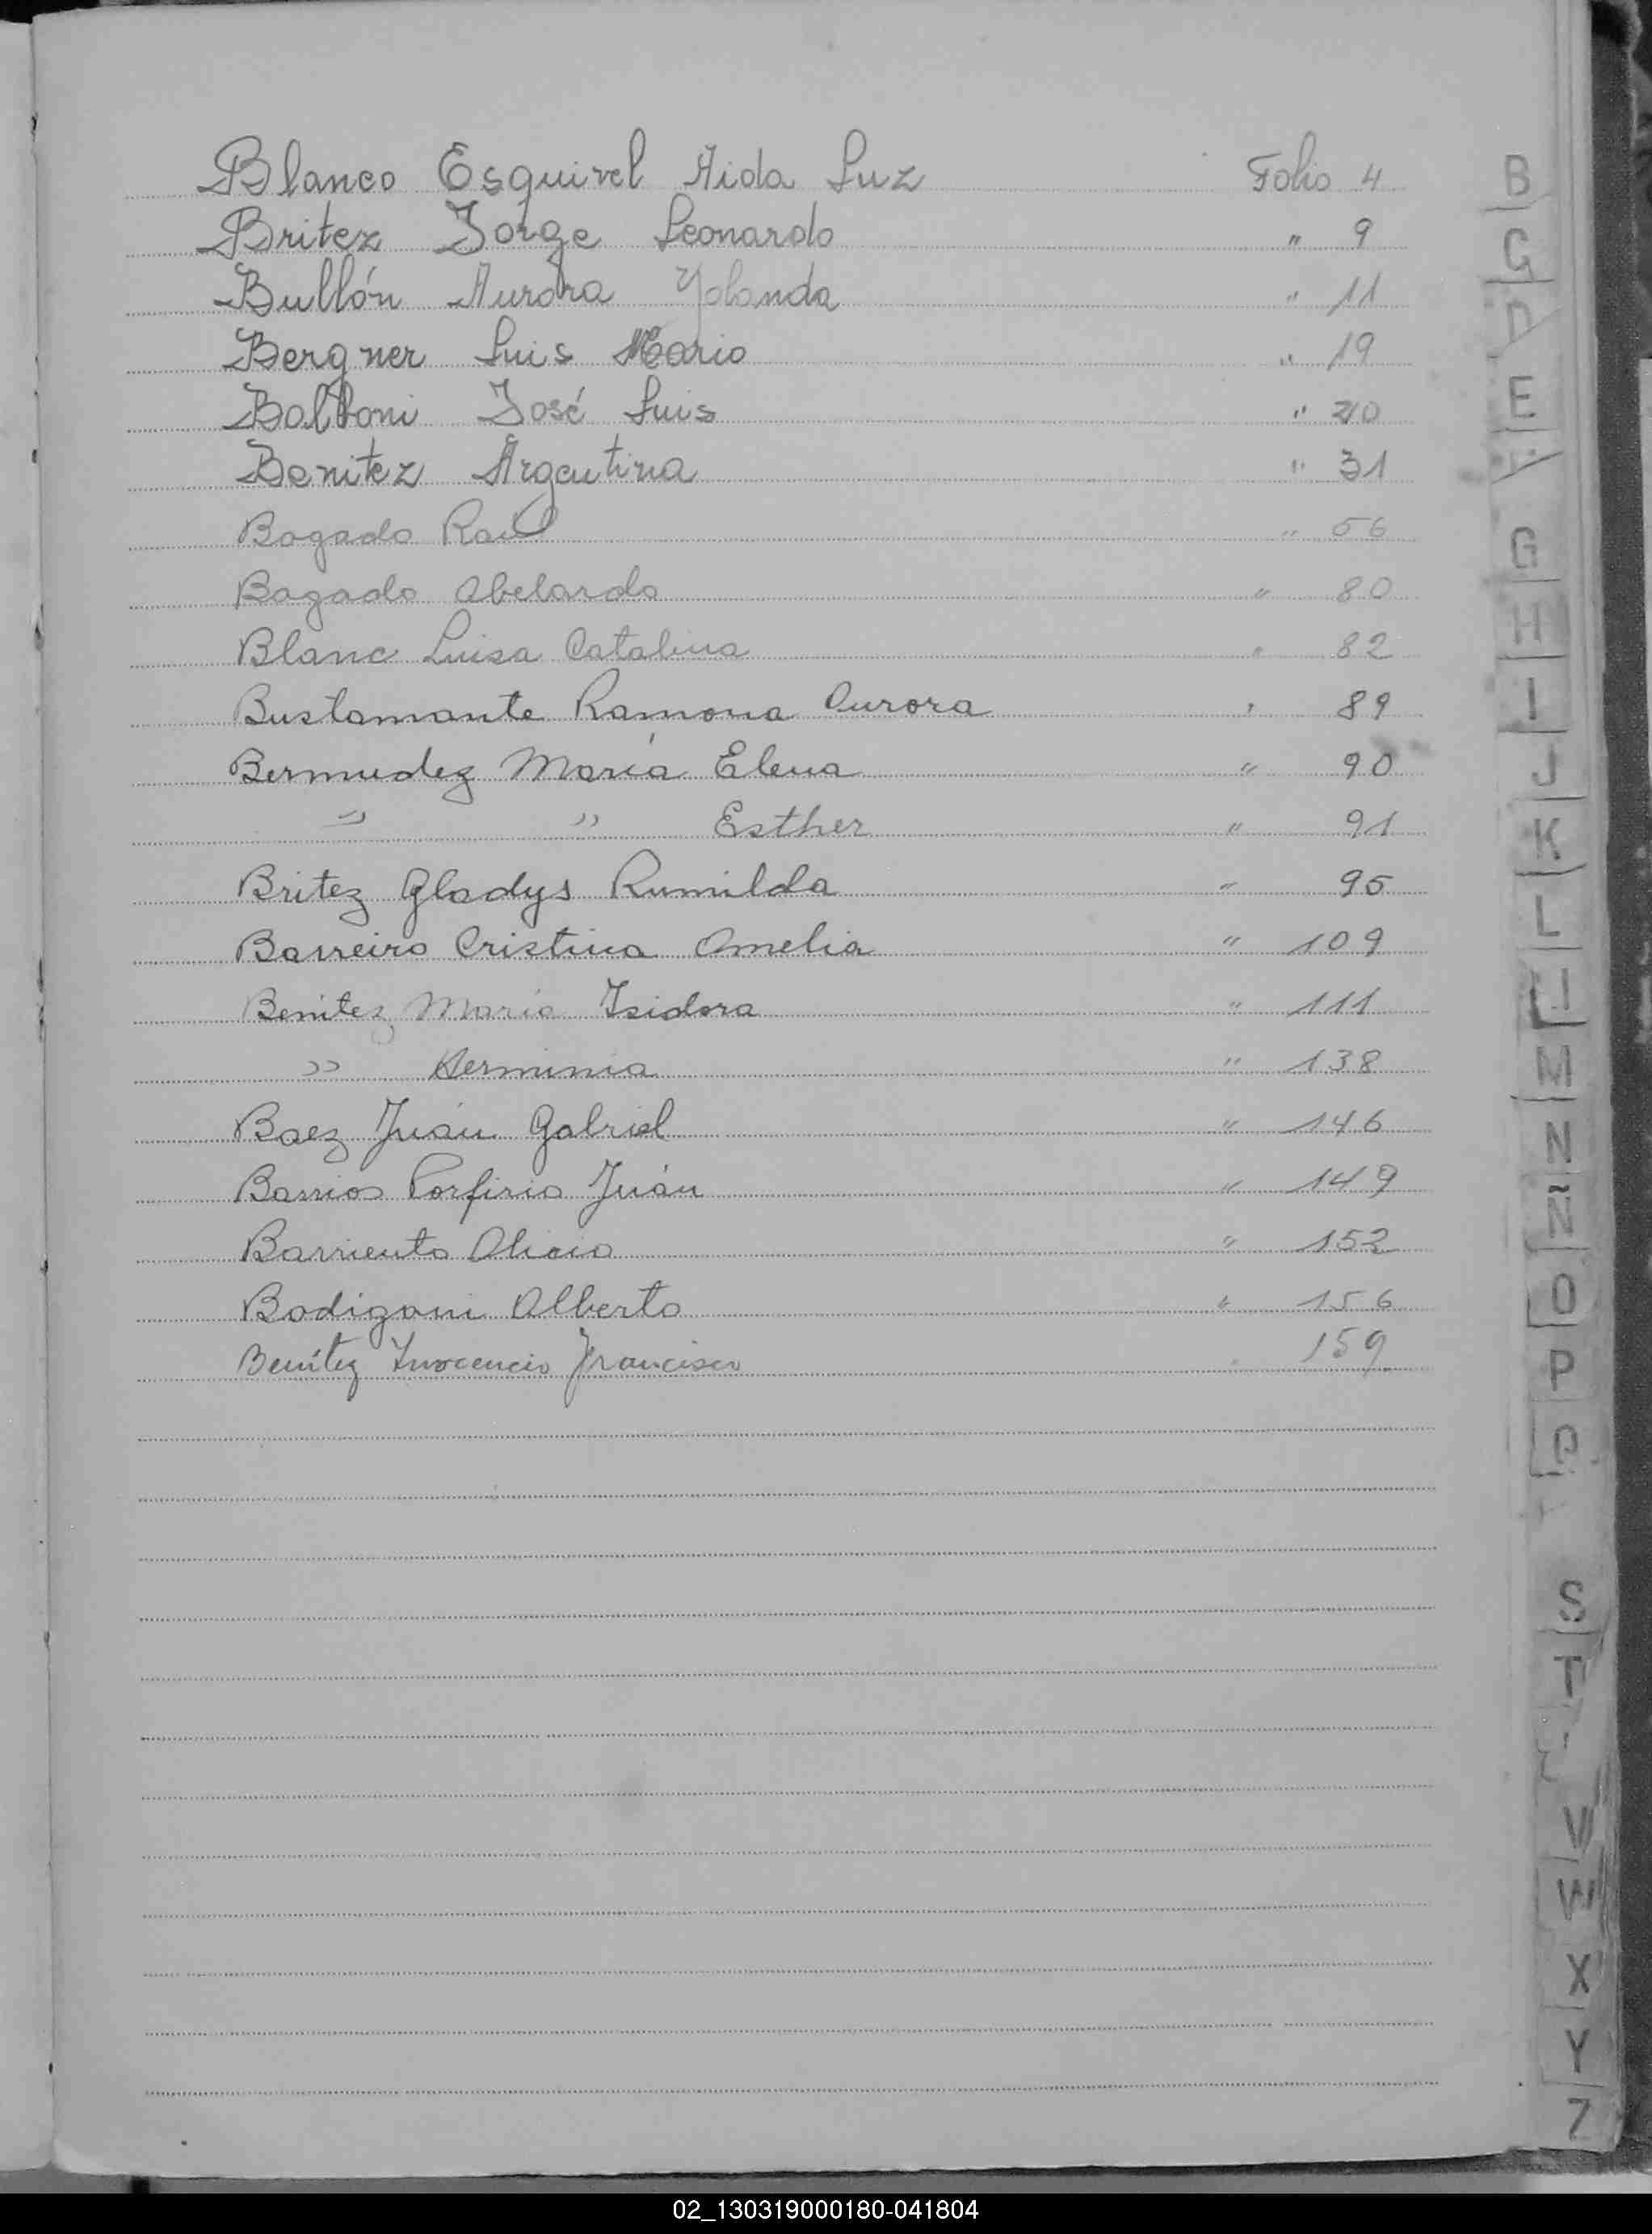 Blanco Esquivel Aida Luz Folio 4
Britez Jorge Leonardo " 9
Bullón Aurora Yolanda " 11
Bergner Luis Mario " 19
José Luis "
Benitez Argentina " 31
Bogado Raul " 56
Bogado Abelardo " 80
Blanc Luisa Catalina " 82
Bustamante Ramona Aurora " 89
Bermudez María Elena " 90
" " Esther " 91
Britez Gladys Rumilda " 95
Barreiro Cristina Amelia " 109
Benitez María Isidora " 111
" Herminia " 138
Baez Juán Gabriel " 146
Barrios Porfirio Juán " 149
Barriento Alicia " 152
Bodigoni Alberto " 156
Benítez Inocencio Francisco " 159
B
C
D
E
F
G
H
I
J
K
L
M
N
Ñ
O
P
Q
S
T
V
W
X
Y
Z
02_130319000180-041804